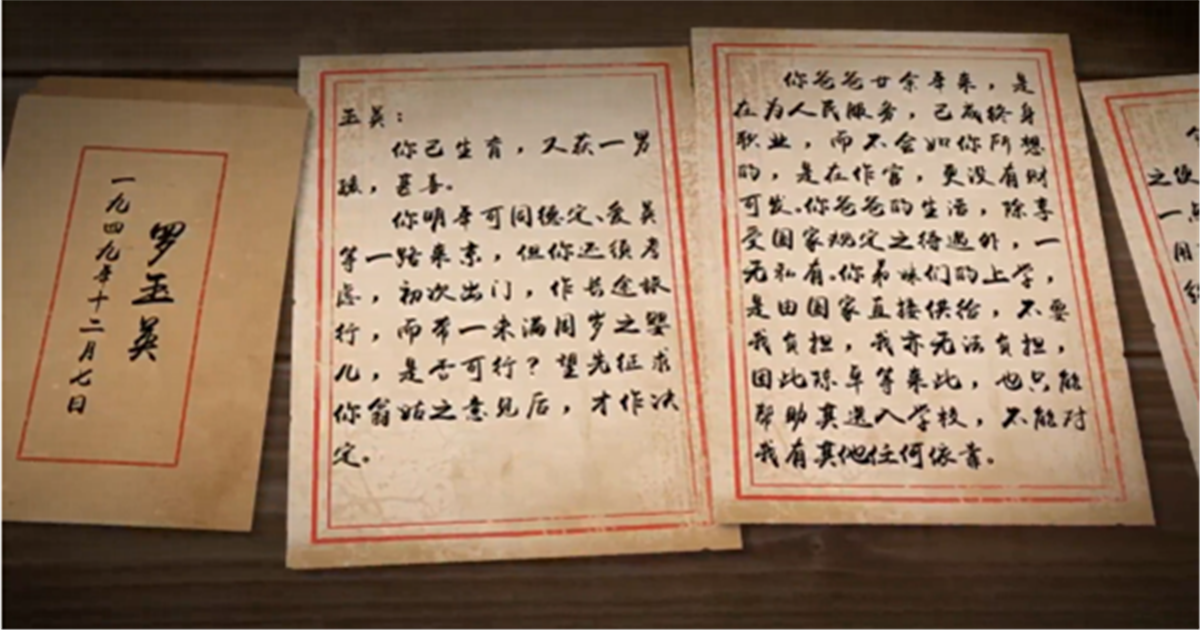 罗玉英
一九四九年十二月七日
玉英：
你已生育，又获一男
孩，甚喜。
你明年可同德定、爱英
等一路来京，但你还须考
虑，初次出门，作长途旅
行，而带一未满周岁之婴
儿，是否可行？望先征求
你翁姑之意见后，才作决
定。
你爸爸廿余年来，是
在为人民服务，已成终身
职业，而不会如你所想
的，是在作官，更没有财
可发。你爸爸的生活，除享
受国家规定之待遇外，一
无私有。你弟妹们的上学，
是由国家直接供给，不要
我负担，我亦无法负担，
因此陈卓等来此，也只能
帮助其进入学校，不能对
我有其他任何依靠。
之
一
用